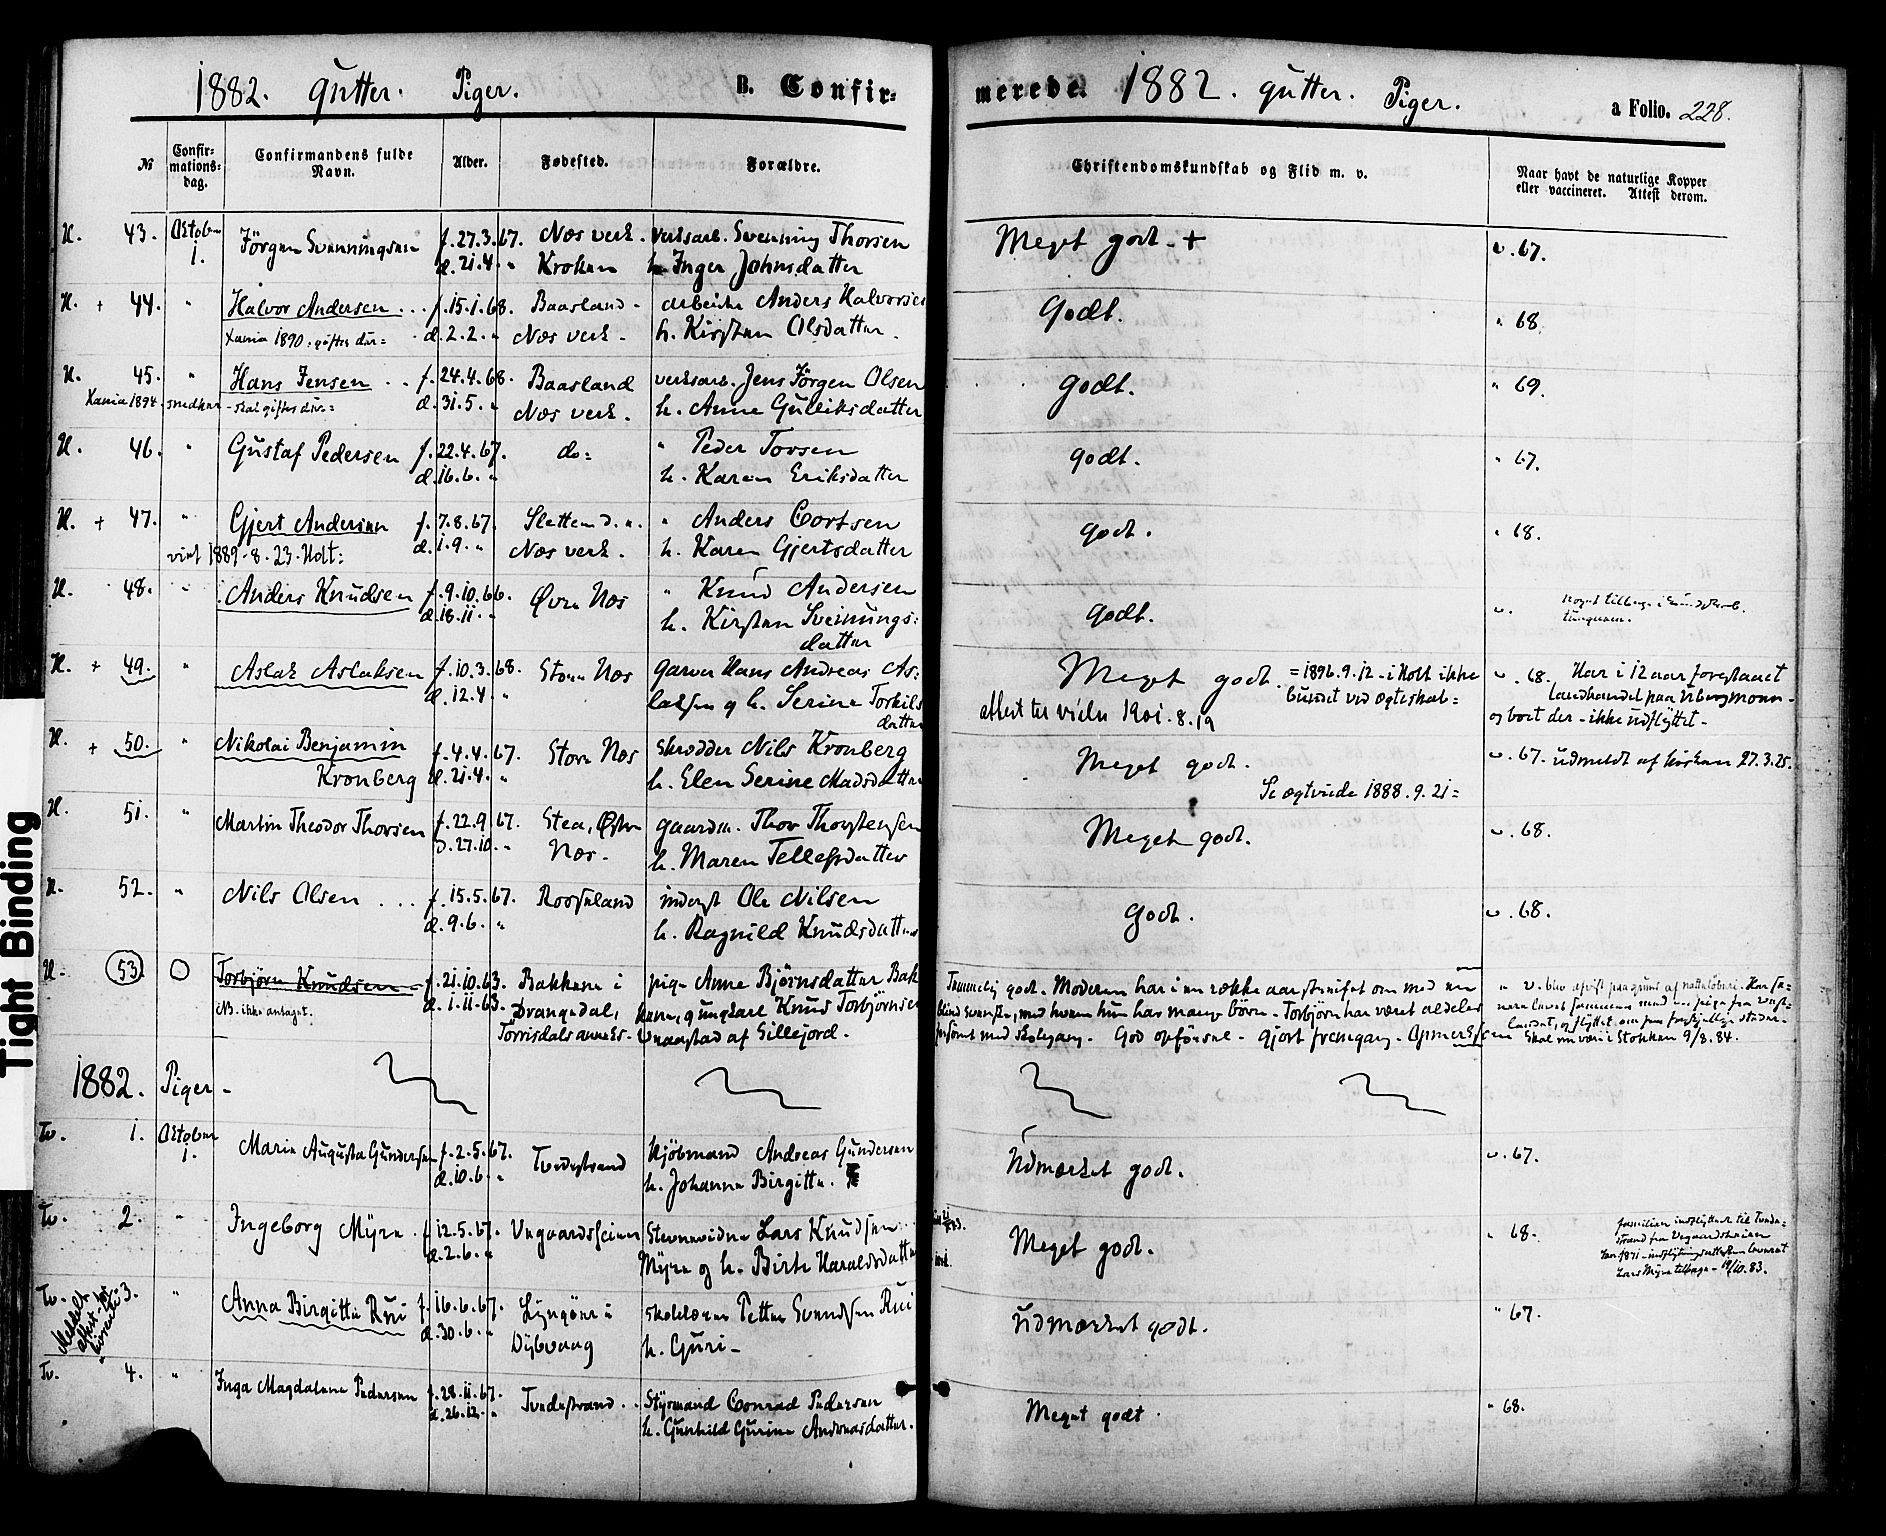 1882. Gutter. Piger. B. Confir-
merede. 1882. Gutter. Piger. a Folio. 228.
№ Confir-mations-dag. Confirmandens fulde Navn. Alder. Fødested. Forældre. Christendomskundskab og Flid m. v. Naar havt de naturlige Kopper eller vaccineret. Attest derom.
H. 43. Oktober Jörgen Svenningsen f. 27.3.67. Næs verk. verksarb. Svenning Thorsen Meget godt. + v. 67.
1. d. 21.4. " Kroken h. Inger Johnsdatter
H. + 44. " Halvor Andersen . . . f. 15.1.68. Baasland - arbeider Anders Halvorsen Godt. " 68.
Xania 1890 : giftes der = d. 2.2. " Næs verk. h. Kirsten Olsdatter.
H. 45. " Hans Jensen . . f. 24.4.68. Baasland verksarb. Jens Jörgen Olsen Godt. " 69.
Xania 1894. snedker - skal giftes der = d. 31.5. " Næs verk. h. Anne Gulliksdatter
H. 46. " Gustaf Pedersen f. 22.4.67. do = " Peder Torsen Godt. " 67.
d. 16.6. " h. Karen Eriksdatter
H. + 47. " Gjert Andersen f. 7.8.67. " Anders Cortsen Godt. " 68.
viet 1889.8.23. Holt: d. 1.9. " Næs verk. h. Karen Gjertsdatter
H. 48. " Anders Knudsen f. 9.10.66. Øvre Næs " Knud Andersen Godt. v.
d. 18.11. " h. Kirsten Svennings:
datter
H. + 49. " Aslak Aslaksen f. 10.3.68. Store Næs garver Hans Andreas As: Meget godt. = 1896.9.12 - i Holt ikke v. 68. Har i 12 aar forestaaet
d. 12.4 " laksen og h. Serine Torkils bundet ved ægteskab = landhandel paa
datter attest ter vielse 1901.8.19 og bort der - ikke udflyttet -
H. + 50. " Nikolai Benjamin f. 4.4.67. Store Næs skrædder Nils Kronberg Meget godt. v. 67. udmeldt af kirken 27.3.25.
Kronberg d. 21.4. " h. Elen Serine Madsdatter
Se ægteviede 1888.9.21 =
H. 51. " Martin Theodor Thorsen f. 22.9.67. Stea, Østre gaardm. Thor Thorstensen Meget godt. v. 68.
d. 27.10. " Næs. h. Maren Tellefsdatter
H. 52. " Nils Olsen . . . f. 15.5.67. Roosfeland inderst Ole Nilsen Godt. v. 68.
d. 9.6. " h. Ragnild Knudsdatter
H. 53. O Torbjörn Knudsen - f. 21.10.63. Bakkene i pige Anne Björnsdatter Bak Temmelig godt. Moderen har i en række aar streifet om med en " v. blev afvist paa grund af natteløberi. Har se-
NB. ikke antaget. d. 1.11.63. Drangedal, kene, og ungkarl Knud Torbjörnsen blind svenske, med hvem hun har mange börn. Torbjörn har været aldeles nere levet sammen med en pige fra vest-
Torrisdals annex. Unaastad af Sillejord. forsömt med skolegang. God opførsel. Gjort fremgang. Opmerksom landet, og flyttet om paa forskjellige steder.
Skal nu være i Stokken 9/8.84.
1882. Piger -
Tv. 1. Oktober Marie Augusta Gundersen f. 2.5.67. Tvedestrand kjöbmand Andreas Gundersen Udmærket godt. v. 67.
1. d. 10.6. " h. Johanne Birgitte.
Tv. 2. " Ingeborg Myre . f. 12.5.67. Vegaardsheien Stevnevidne Lars Knudsen Meget godt. " 68. familien indflyttet til Tvede-
d. 2.6. " Myre og h. Birte Haraldsdatter strand fra Vegaardsheien
1871 - indflytningsattesten leveret
Lars Myre tilbage - 19/10.83.
Tv. 3. " Anna Birgitte Rui f. 16.6.67. Lyngöer i skolelærer Petter Svendsen Rui Udmærket godt. " 67.
Meldelt attest for d. 30.6. " Dybvaag h. Guri -
Tv. 4. " Inga Magdalene Pedersen f. 28.11.67. Tvedestrand . . Styrmand Conrad Pedersen Meget godt. " 68.
d. 26.12. " h. Gunhild Gurine Andreasdatter.
Tight Binding